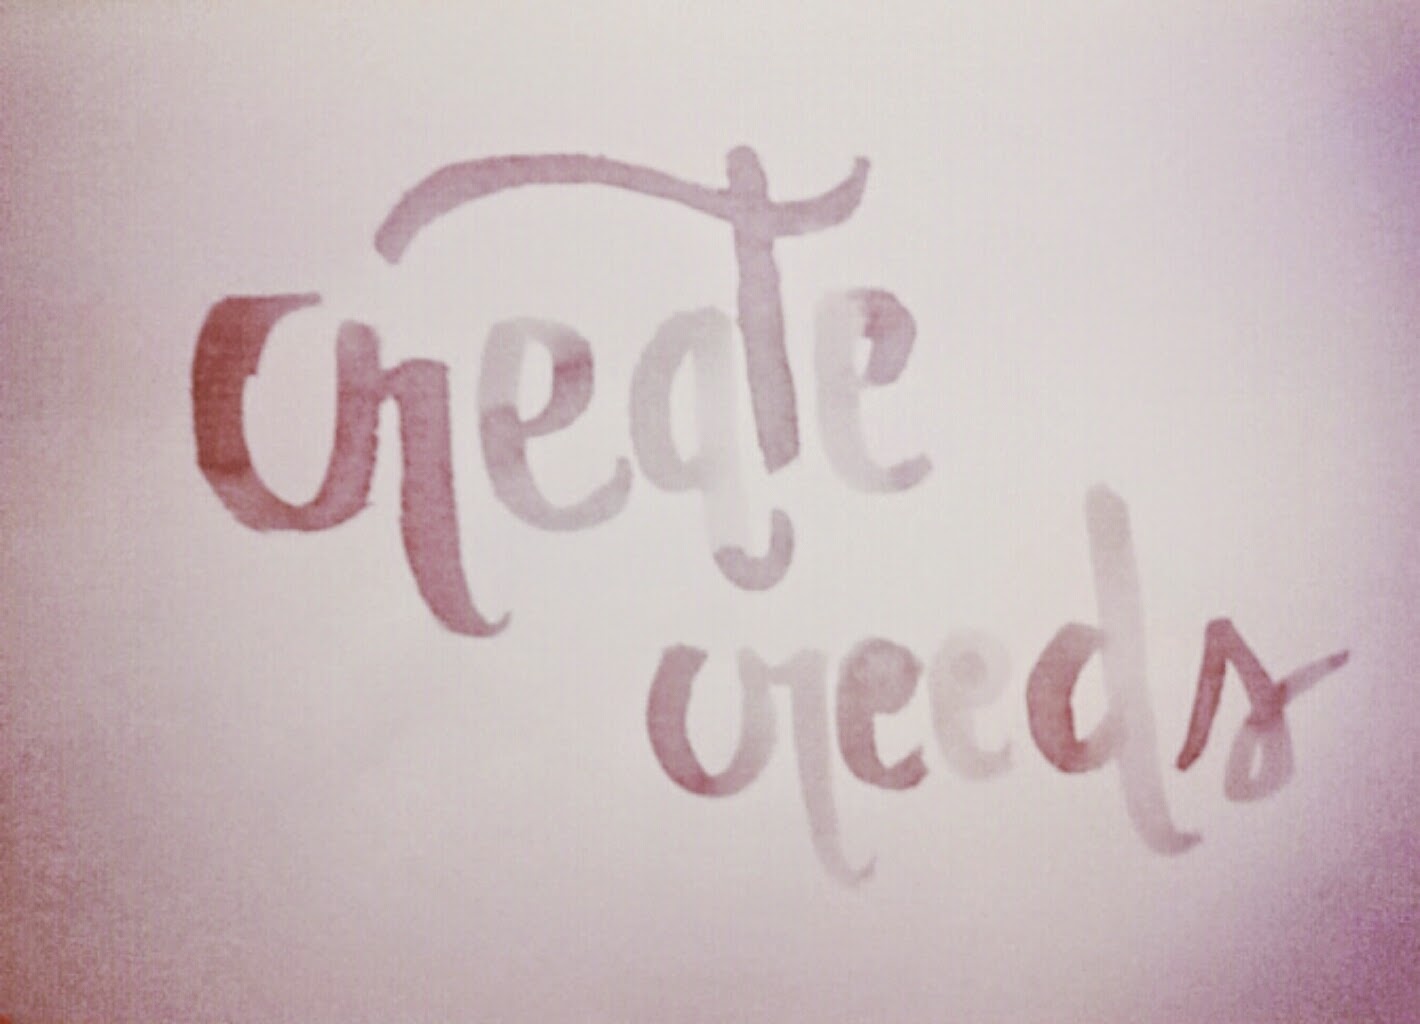 create
creeds